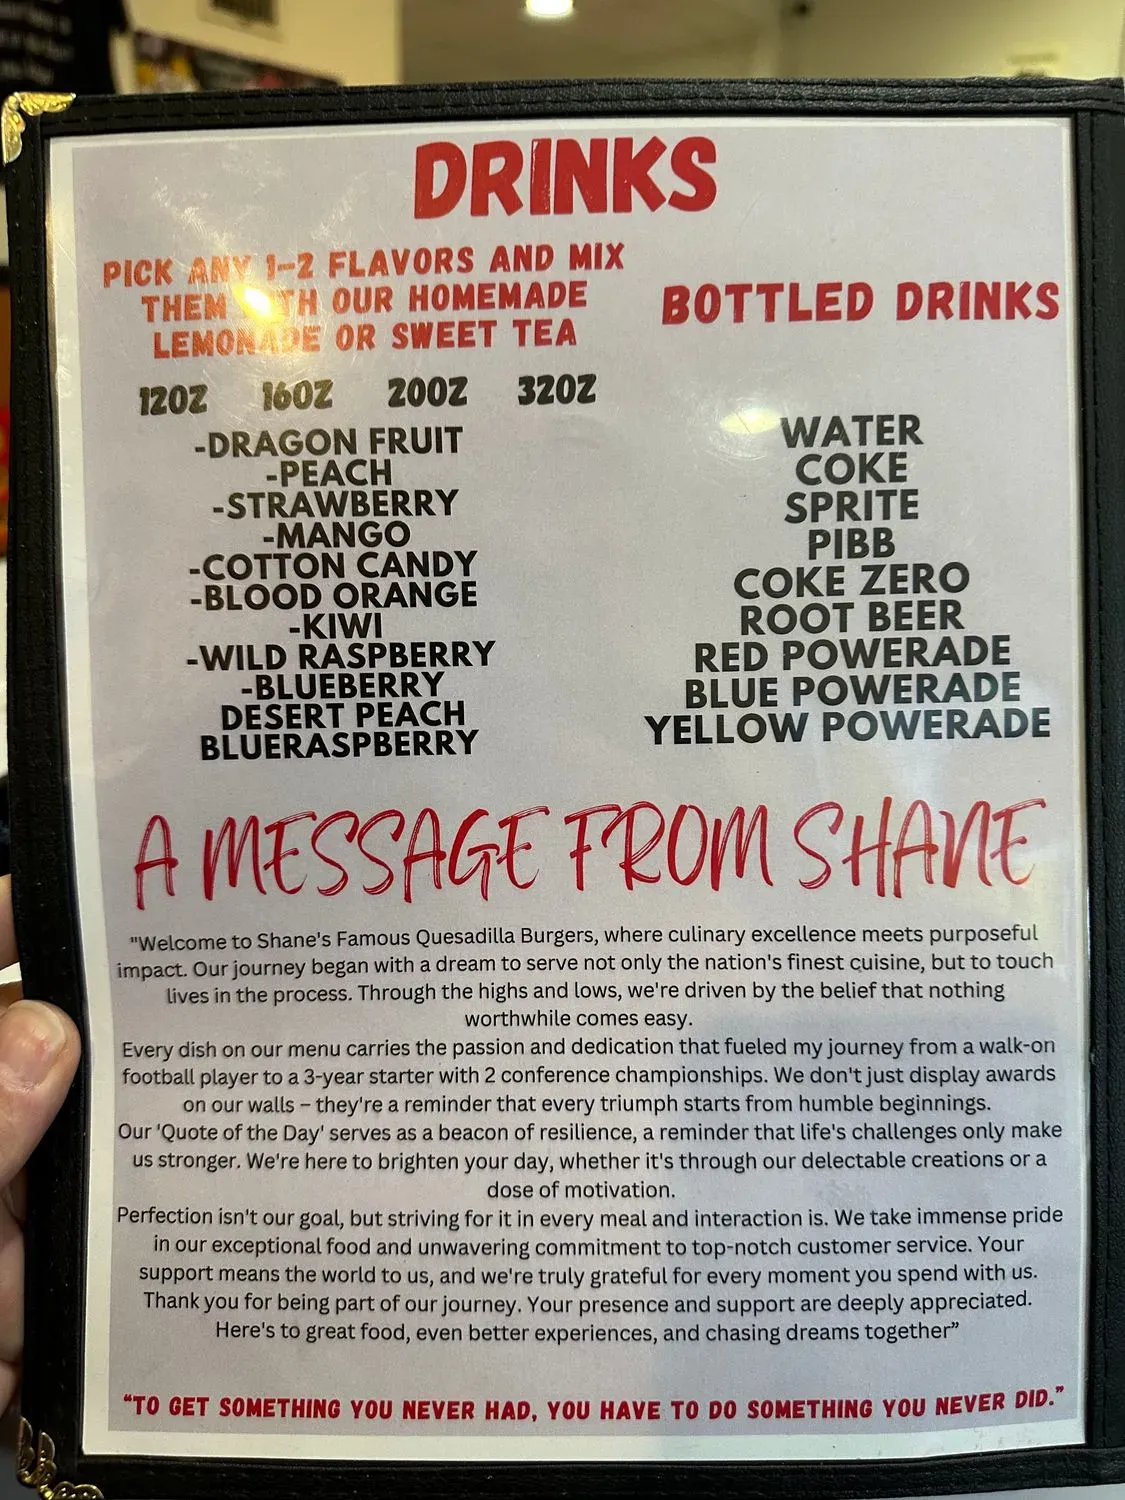 DRINKS
PICK ANY 1-2 FLAVORS AND MIX
THEM WITH OUR HOMEMADE
LEMONADE OR SWEET TEA
12OZ 16OZ 20OZ 32OZ
-DRAGON FRUIT
-PEACH
-STRAWBERRY
-MANGO
-COTTON CANDY
-BLOOD ORANGE
-KIWI
-WILD RASPBERRY
-BLUEBERRY
DESERT PEACH
BLUERASPBERRY
BOTTLED DRINKS
WATER
COKE
SPRITE
PIBB
COKE ZERO
ROOT BEER
RED POWERADE
BLUE POWERADE
YELLOW POWERADE
A MESSAGE FROM SHANE
"Welcome to Shane's Famous Quesadilla Burgers, where culinary excellence meets purposeful
impact. Our journey began with a dream to serve not only the nation's finest cuisine, but to touch
lives in the process. Through the highs and lows, we're driven by the belief that nothing
worthwhile comes easy.
Every dish on our menu carries the passion and dedication that fueled my journey from a walk-on
football player to a 3-year starter with 2 conference championships. We don't just display awards
on our walls – they're a reminder that every triumph starts from humble beginnings.
Our 'Quote of the Day' serves as a beacon of resilience, a reminder that life's challenges only make
us stronger. We're here to brighten your day, whether it's through our delectable creations or a
dose of motivation.
Perfection isn't our goal, but striving for it in every meal and interaction is. We take immense pride
in our exceptional food and unwavering commitment to top-notch customer service. Your
support means the world to us, and we're truly grateful for every moment you spend with us.
Thank you for being part of our journey. Your presence and support are deeply appreciated.
Here's to great food, even better experiences, and chasing dreams together”
“TO GET SOMETHING YOU NEVER HAD, YOU HAVE TO DO SOMETHING YOU NEVER DID.”